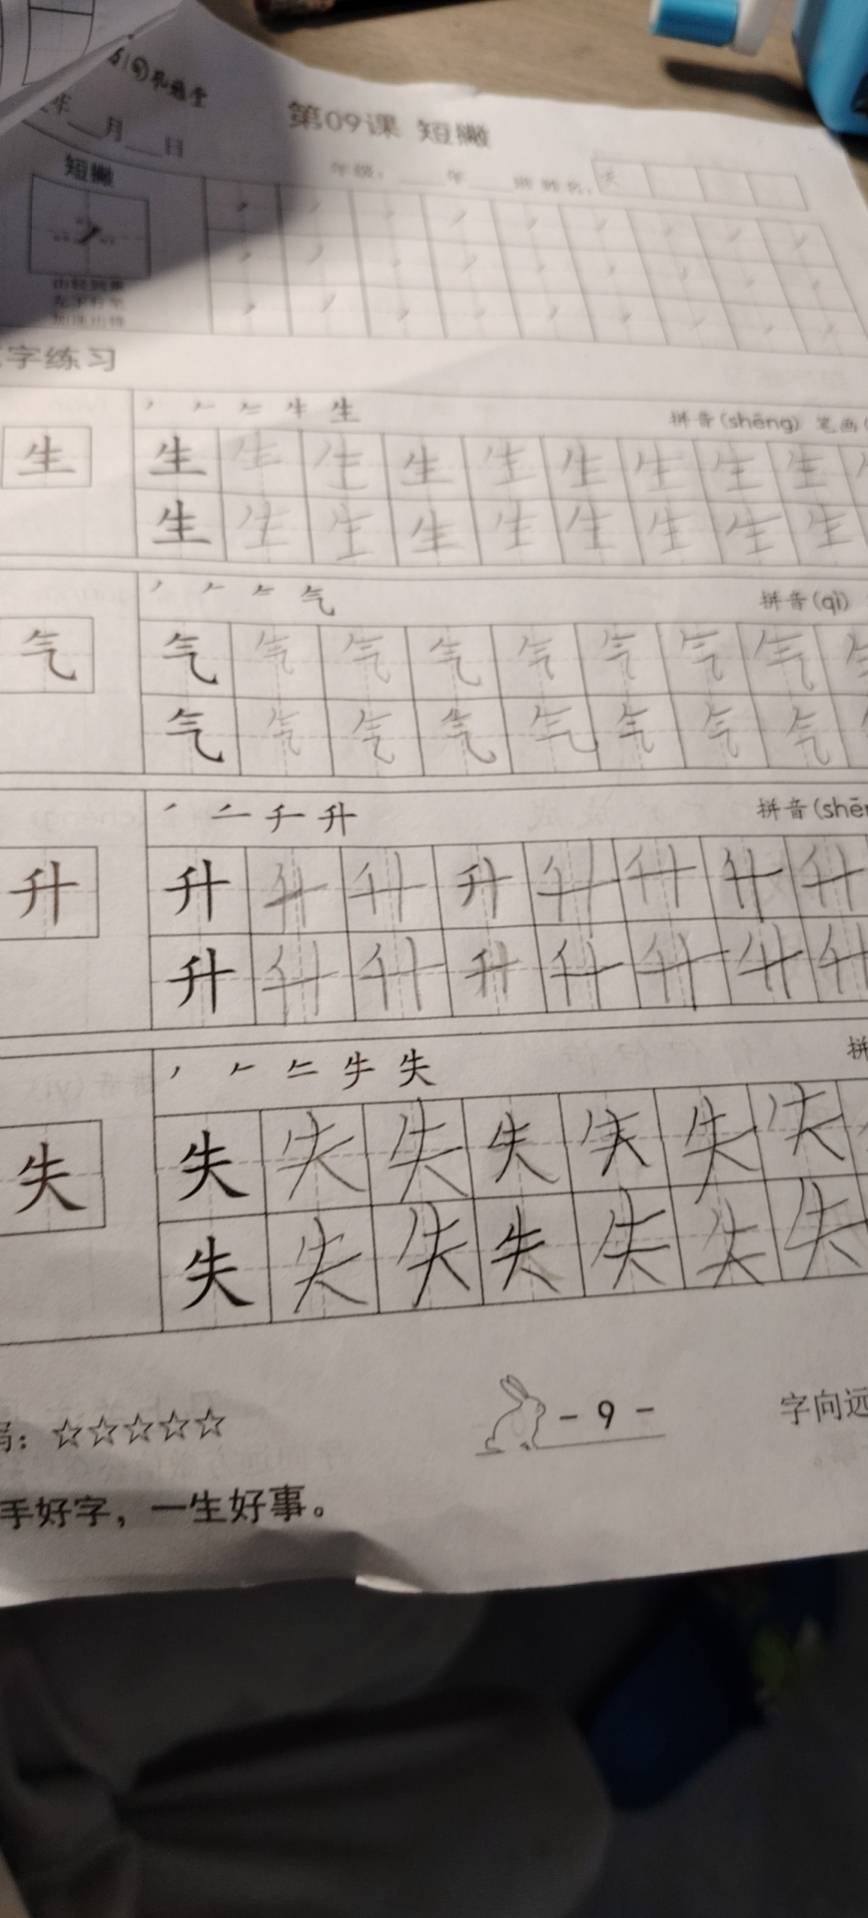 年__月__日
第09课 短撇
短撇
年级：____年____班 姓名：
字练习
丿 𠂉 生
拼音(shēng) 笔画(
生 生 生 生 生 生 生 生 生 生
生 生 生 生 生 生 生 生 生
气
拼音(qì)
气 气 气 气 气 气 气 气 气
气 气 气 气 气 气 气 气
千 升
拼音(shē
升 升 升 升 升 升 升 升 升
升 升 升 升 升 升 升 升
失
拼
失 失 失 失 失 失 失 失
失 失 失 失 失 失 失
：☆☆☆☆☆
- 9 -
字向远
手好字，一生好事。